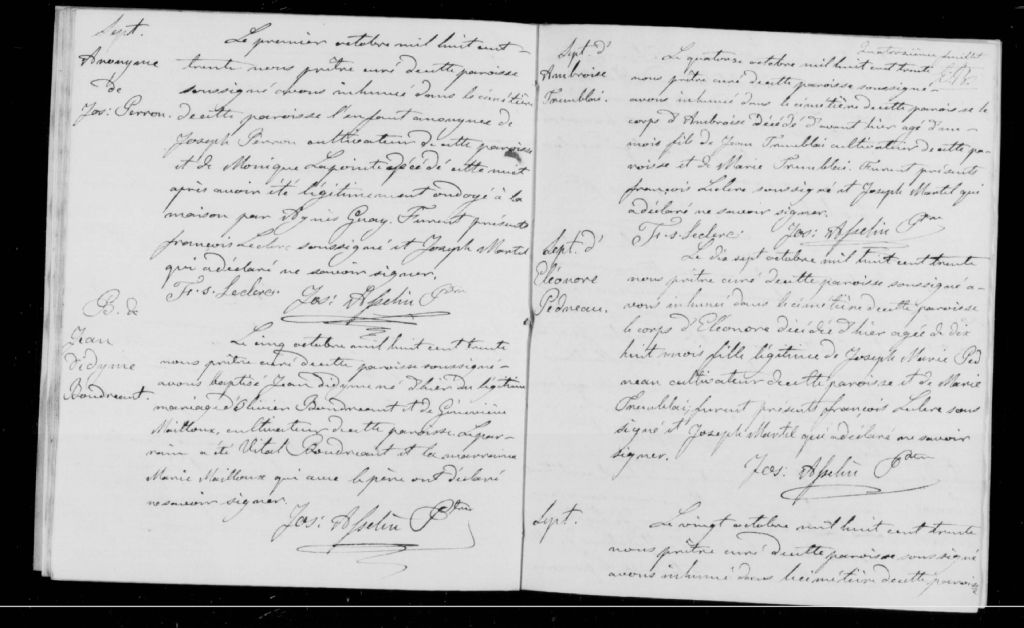 Sept.
Anonyme
de
Jos: Perron.
Le premier octobre mil huit cent
trente nous prêtre curé de cette paroisse
soussigné avons inhumé dans le cimétière
de cette paroisse l'enfant anonyme de
Joseph Perron cultivateur de cette paroisse
et de Monique Lapointe décédé cette nuit
après avoir été légitimement ondoyé à la
maison par Agnès Guay. Furent présents
françois Leclerc soussigné et Joseph Martel
qui a déclaré ne savoir signer.
Fr. s. Leclerc. Jos: Asselin Ptre
B. de
Jean
didyme
Boudreault.
Le cinq octobre mil huit cent trente
nous prêtre curé de cette paroisse soussigné
avons baptisé Jean didyme né d'hier du légitime
mariage d'Olivier Boudreault et de Géneviève
Mailloux, cultivateur de cette paroisse. Le par-
rain a été Vital Boudreault et la marraine
Marie Mailloux qui avec le père ont déclaré
ne savoir signer.
Jos: Asselin Ptre
Quatorzième feuillet
Sept. d'
Ambroise
Tremblai.
Le quatorze octobre mil huit cent trente
nous prêtre curé de cette paroisse soussigné
avons inhumé dans le cimetière de cette paroisse le
corps d'Ambroise décédé d'avant hier agé d'un
mois fils de Jean Tremblai cultivateur de cette pa-
roisse et de Marie Tremblai. Furent présents
françois Leclerc soussigné et Joseph Martel qui
a déclaré ne savoir signer.
Fr. s. Leclerc. Jos: Asselin Ptre
Sept. d'
Eléonore
Pedneau.
Le dix sept octobre mil huit cent trente
nous prêtre curé de cette paroisse soussigné a-
vons inhumé dans le cimetière de cette paroisse
le corps d'Eléonore décédée d'hier agée de dix
huit mois fille légitime de Joseph Marie Ped
neau cultivateur de cette paroisse et de Marie
Tremblai, furent présents françois Leclerc sous
signé et Joseph Martel qui a déclaré ne savoir
signer.
Jos: Asselin Ptre
Sept.
Le vingt octobre mil huit cent trente
nous prêtre curé de cette paroisse soussigné
avons inhumé dans le cimétière de cette paroisse